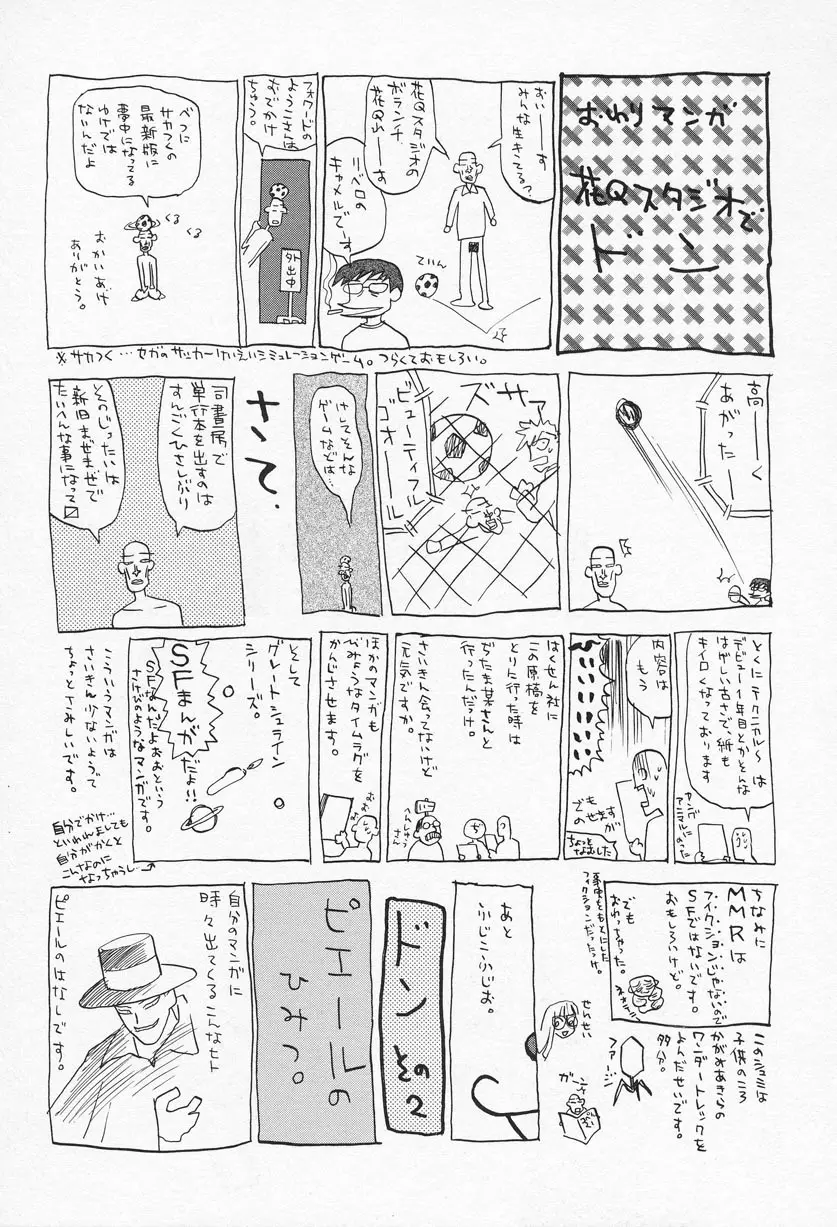 おわりマンガ
花Qスタジオで
ドン
おぃーーす
みんな生きてる?
花Qスタジオの
ボランチ、
花Q山ーす
リベロの
キャメルです
ていん
フォワードの
ようこさんは
おでかけ
ちゅう。
外出中
べつに
サカつくの
最新版に
夢中になってる
わけでは
ないんだよ
くる
くる
おかいあげ
ありがとう。
※サカつく…セガのサッカーけいえいシミュレーションゲーム。つらくておもしろい。
高ーーく
あがったーー
ズサァ
ビューティフル
ゴオール
けしてそんな
ゲームなどは…
さて、
司書房で
単行本を出すのは
すんごくひさしぶり
そのじったいは
新旧まぜまぜで
たいへんな事になって〼
とくにテクニカル〜は
デビュー1年目とかそんな
はげしい古さで、紙も
キイロくなっております
ヤング
アニマルにのった
内容は
もう
でも
のせますが
ちょっと
なおしました
はくせん社に
この原稿を
とりに行った時は
ぢたま某さんと
行ったんだっけ。
さいきん会ってないけど
元気ですか。
へんしゅう
さん
ぢ
ほかのマンガも
びみょうなタイムラグを
かんじさせます。
おお
そして
グレートシュライン
シリーズ。
SF
まんが
だよ!!
SFなんだよおおという
さけびのようなマンガです。
こういうマンガは
さいきん少ないようで
ちょっとさみしいです。
自分でかけ…
といわれんとしても
自分がかくと
こんなのに
なっちゃうし…
ちなみに
MMRは
フィクションじゃないので
SFではないです。
おもしろいけど。
でも
おわっちゃった。
フィクションだったっけ。
このシュミは
子供のころ
かがみあきらの
ワンダートレックを
よんだせいです。
多分。
せんせい
ファージ
ガーン
あと
ふじこふじお。
ドン その2
ピエールの
ひみつ。
自分のマンガに
時々出てくるこんなヒト
ピエールのはなしです。